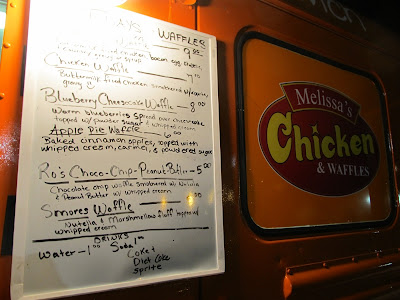 WAFFLES
9.00
bacon egg, cheese,
Chicken Waffle
Buttermilk Fried chicken smothered w/
gravy
Blueberry Cheesecake Waffle 8.00
Warm blueberries spread over cheesecake
topped w/ powder sugar & whipped cream
Apple Pie Waffle 6.00
Baked cinnamon apples, topped with
whipped cream, carmel, & powdered sugar
Ro's Choco-Chip-Peanut-Butter - 5.00
Chocolate chip waffle smothered w/ Nutella
& Peanut Butter w/ whipped cream
Smores Waffle
Nutella & Marshmellow fluff topped w/
whipped cream
DRINKS
Water - 1.00 Soda 1.00
Coke
Diet Coke
Sprite
Melissa's
Chicken
& WAFFLES